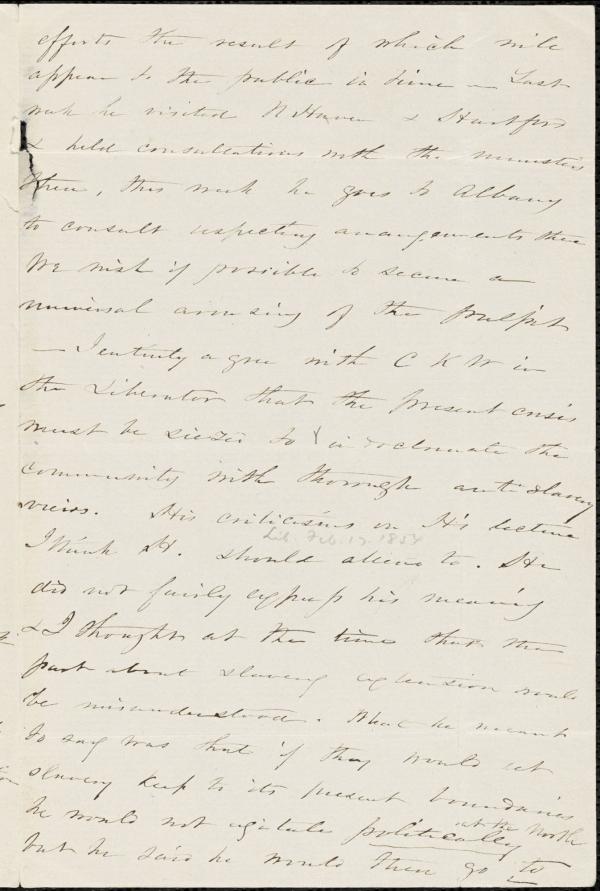 efforts the result of which will
appear to the public in time — Last
week he visited N Haven & Hartford
& held consultations with the ministers
there, this week he goes to Albany
to consult respecting arrangements there
We wish if possible to secure a
universal arousing of the pulpit
— I entirely agree with C K W in
the Liberator that the present crisis
must be siezed to indoctrinate the
community with thorough anti slavery
views. His criticisms on H's lecture
Lib. Feb. 17. 1854
I think H. should allude to. He
did not fairly express his meaning
& I thought at the time that the
part about slavery extension would
be misunderstood. What he meant
to say was that if they would let
slavery keep to its present boundaries
he would not agitate politically at the North
but he said he would then go to